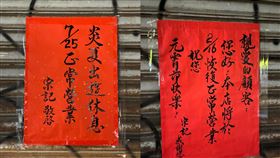 炎夏出遊休息
7/25正常營業
宋記 敬啓
親愛的顧客:
您好,本店將於
2/16恢復正常營業
祝您
元宵節快樂!
宋記